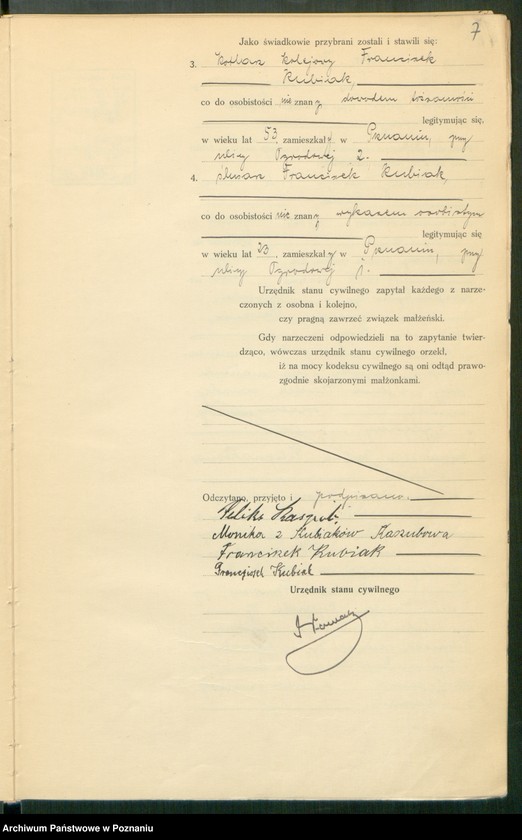 7
Jako świadkowie przybrani zostali i stawili się:
3. kotlarz kolejowy Franciszek
Kubiak,
co do osobistości nie znany dowodem tożsamości
legitymując się,
w wieku lat 53, zamieszkały w Poznaniu, przy
ulicy Ogrodowej 2.
4. ślusarz Franciszek Kubiak,
co do osobistości nie znany wykazem osobistym
legitymując się
w wieku lat 23, zamieszkały w Poznaniu, przy
ulicy Ogrodowej
Urzędnik stanu cywilnego zapytał każdego z narze-
czonych z osobna i kolejno,
czy pragną zawrzeć związek małżeński.
Gdy narzeczeni odpowiedzieli na to zapytanie twier-
dząco, wówczas urzędnik stanu cywilnego orzekł,
iż na mocy kodeksu cywilnego są oni odtąd prawo-
zgodnie skojarzonymi małżonkami.
Odczytano, przyjęto i podpisano.
Feliks
Monika z Kubiaków Kaszubowa
Franciszek Kubiak
Franciszek Kubiak
Urzędnik stanu cywilnego
Archiwum Państwowe w Poznaniu